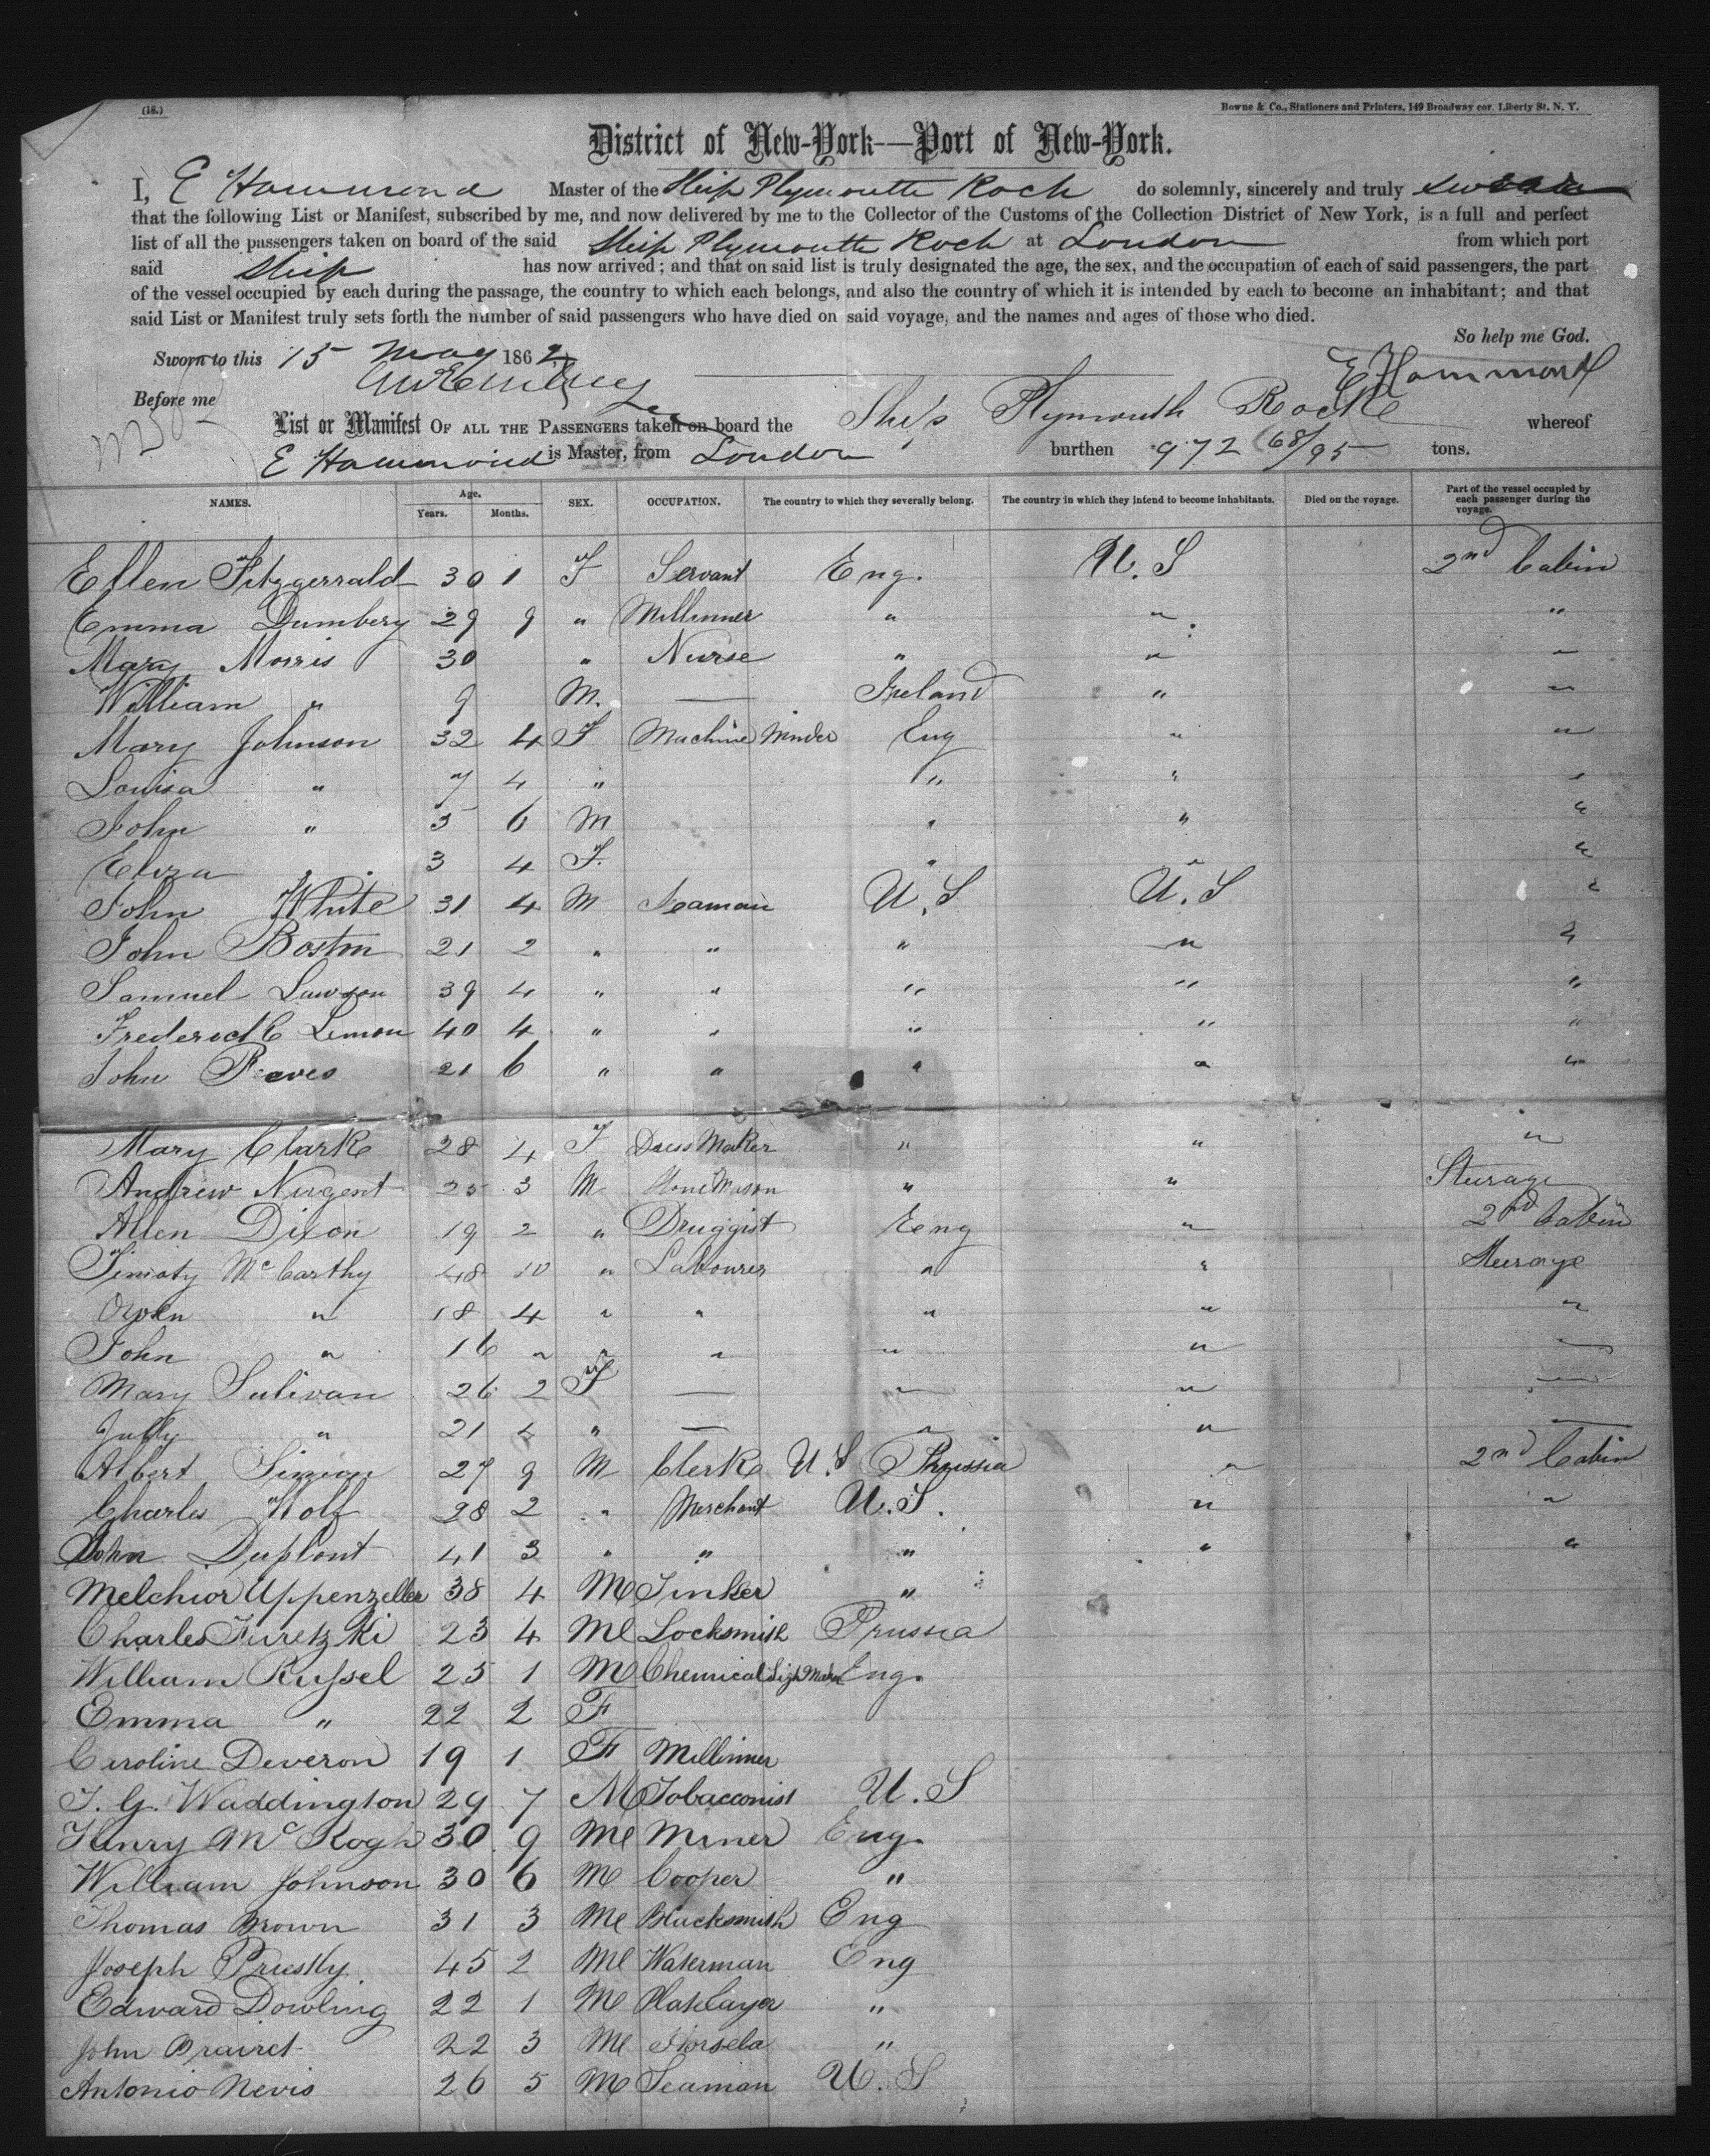 (18.)
Bowne & Co., Stationers and Printers, 149 Broadway cor. Liberty St. N. Y.
District of New-York—Port of New-York.
I, E Hammond Master of the Ship Plymouth Rock do solemnly, sincerely and truly swear
that the following List or Manifest, subscribed by me, and now delivered by me to the Collector of the Customs of the Collection District of New York, is a full and perfect
list of all the passengers taken on board of the said Ship Plymouth Rock at London from which port
said Ship has now arrived; and that on said list is truly designated the age, the sex, and the occupation of each of said passengers, the part
of the vessel occupied by each during the passage, the country to which each belongs, and also the country of which it is intended by each to become an inhabitant; and that
said List or Manifest truly sets forth the number of said passengers who have died on said voyage, and the names and ages of those who died.
So help me God.
Sworn to this 15 May 1862
E Hammond
Before me
List or Manifest OF ALL THE PASSENGERS taken on board the Ship Plymouth Rock whereof
E Hammond is Master, from London burthen 972 68/95 tons.
NAMES. Age. Years. Months. SEX. OCCUPATION. The country to which they severally belong. The country in which they intend to become inhabitants. Died on the voyage. Part of the vessel occupied by each passenger during the voyage.
Ellen Fitzgerrald 30 1 F Servant Eng. U.S 2nd Cabin
Emma Dumbery 29 9 " Millinner " " "
Mary Morris 30 " Nurse " " "
William " 9 M. — Ireland " "
Mary Johnson 32 4 F Machine Minder Eng " "
Louisa " 7 4 " " " "
John " 5 6 M " " "
Eliza " 3 4 F. " " "
John White 31 4 M Seaman U.S U.S "
John Boston 21 2 " " " " "
Samuel Lawson 39 4 " " " " "
Frederick Lemon 40 4 " " " " "
John Reeves 21 6 " " " " "
Mary Clark 28 4 F Dress Maker " " "
Andrew Nugent 25 3 M Stone Mason " " Sturage
Allen Dixon 19 2 " Druggist Eng " 2nd Cabin
Timoty McCarthy 48 10 " Labourer " " Steerage
Owen " 18 4 " " " " "
John " 16 " " " " " "
Mary Sulivan 26 2 F — " " "
Jully " 21 4 " — " "
Albert Simion 27 9 M Clerk U.S Prussia " 2nd Cabin
Charles Wolf 28 2 " Merchant U.S. " "
John Duplont 41 3 " " " " "
Melchior Appenzeller 38 4 M Tinker "
Charles Furetzki 23 4 M Locksmith Prussia
William Russel 25 1 M Chemical Light Maker Eng.
Emma " 22 2 F
Caroline Deveron 19 1 F Millinner
T. G. Waddington 29 7 M Tobacconist U.S
Henry Mc Kogh 30 9 M Miner Eng.
William Johnson 30 6 M Cooper "
Thomas Brown 31 3 M Blacksmith Eng
Joseph Prustly 45 2 M Waterman Eng
Edward Dowling 22 1 M Platelayer "
John 22 3 M "
Antonio Nevis 26 5 M Seaman U.S